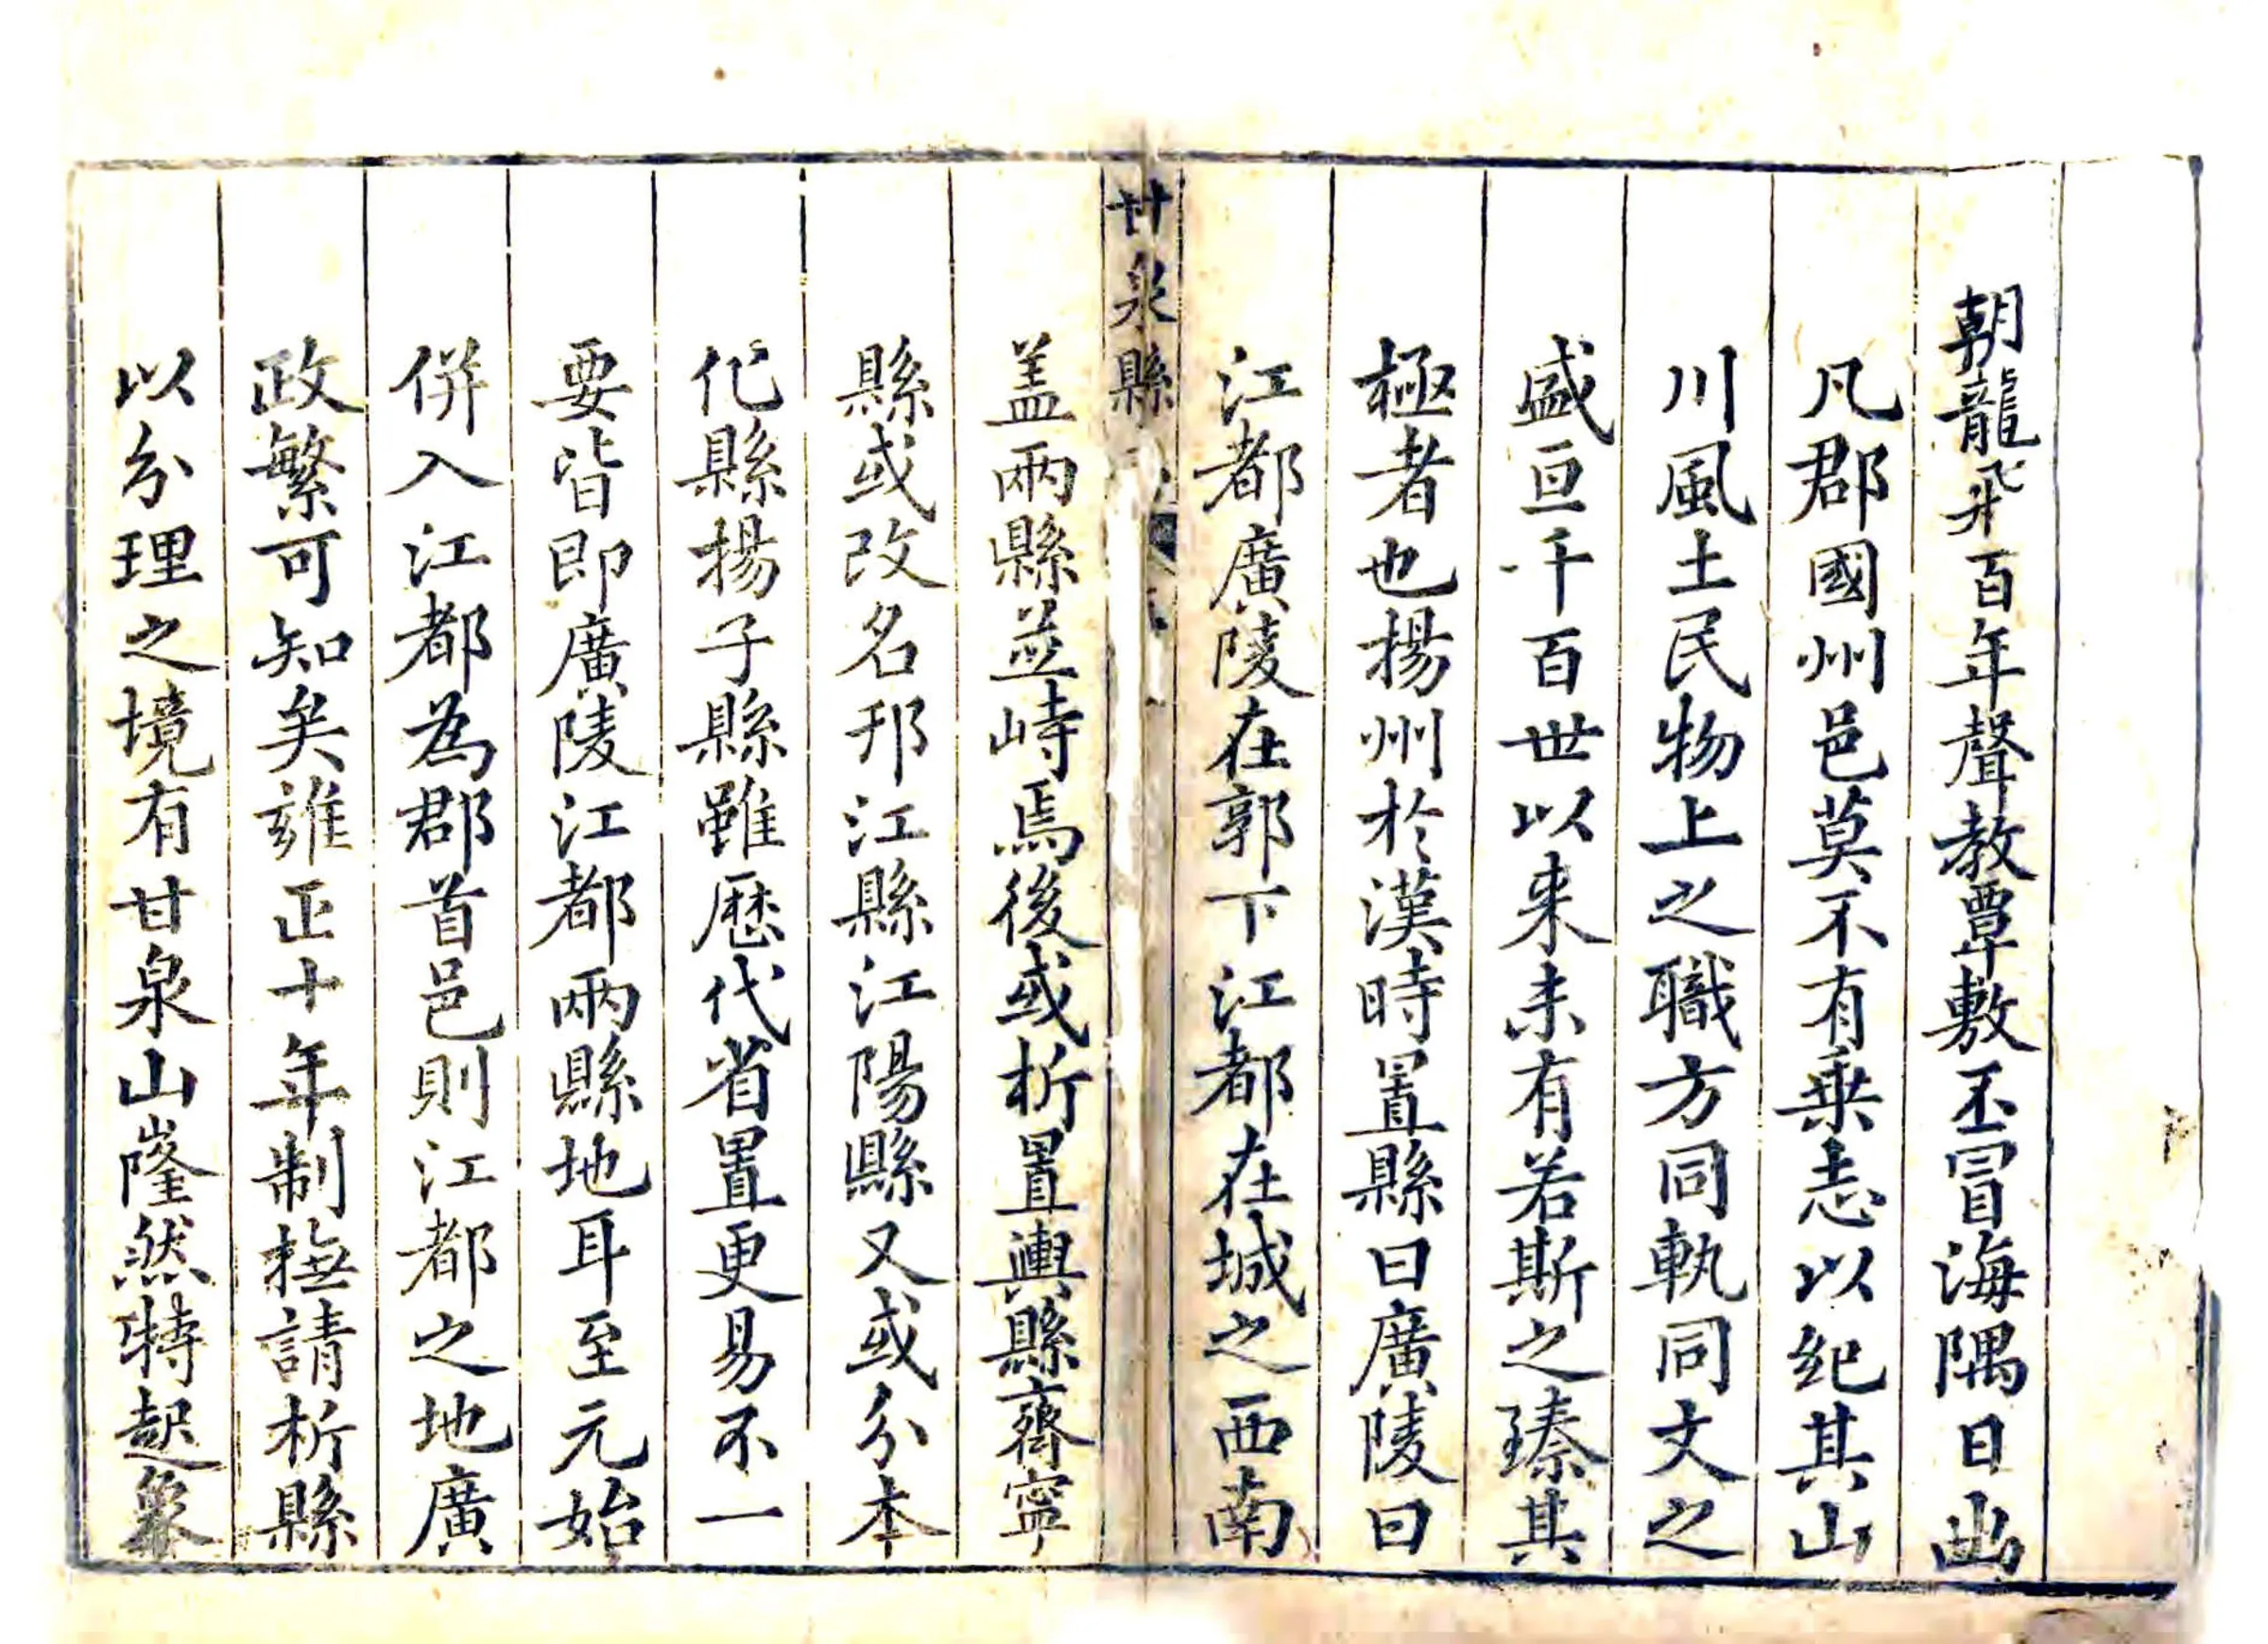 朝龍飛百年聲教覃敷丕冒海隅日出
凡郡國州邑莫不有乗志以紀其山
川風土民物上之職方同軌同文之
盛亘千百世以来未有若斯之臻其
極者也揚州於漢時置縣曰廣陵曰
江都廣陵在郭下江都在城之西南
甘泉縣
盖兩縣並峙焉後或析置輿縣齊寧
縣或改名邗江縣江陽縣又或分本
化縣揚子縣雖歴代省置更易不一
要皆即廣陵江都兩縣地耳至元始
併入江都為郡首邑則江都之地廣
政繁可知矣雍正十年制撫請析縣
以分理之境有甘泉山嶐然特起象